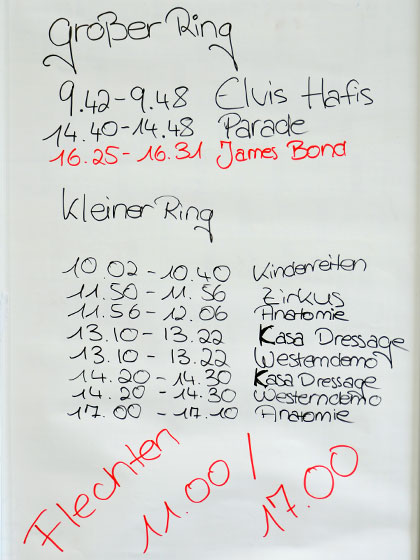 Großer Ring
9.42-9.48 Elvis Hafis
14.40-14.48 Parade
16.25-16.31 James Bond
Kleiner Ring
10.02-10.40 Kinderreiten
11.50-11.56 Zirkus
11.56-12.06 Anatomie
13.10-13.22 Kasa Dressage
13.10-13.22 Westerndemo
14.20-14.30 Kasa Dressage
14.20-14.30 Westerndemo
17.00-17.10 Anatomie
Flechten 11.00 / 17.00